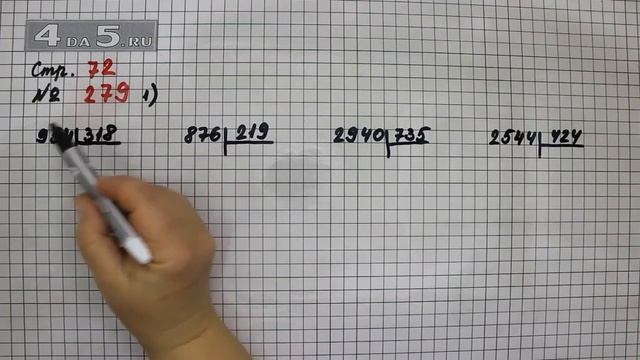 4 DA 5.RU
Стр. 72
№ 279 1)
318 876 219 2940 735 2544 424